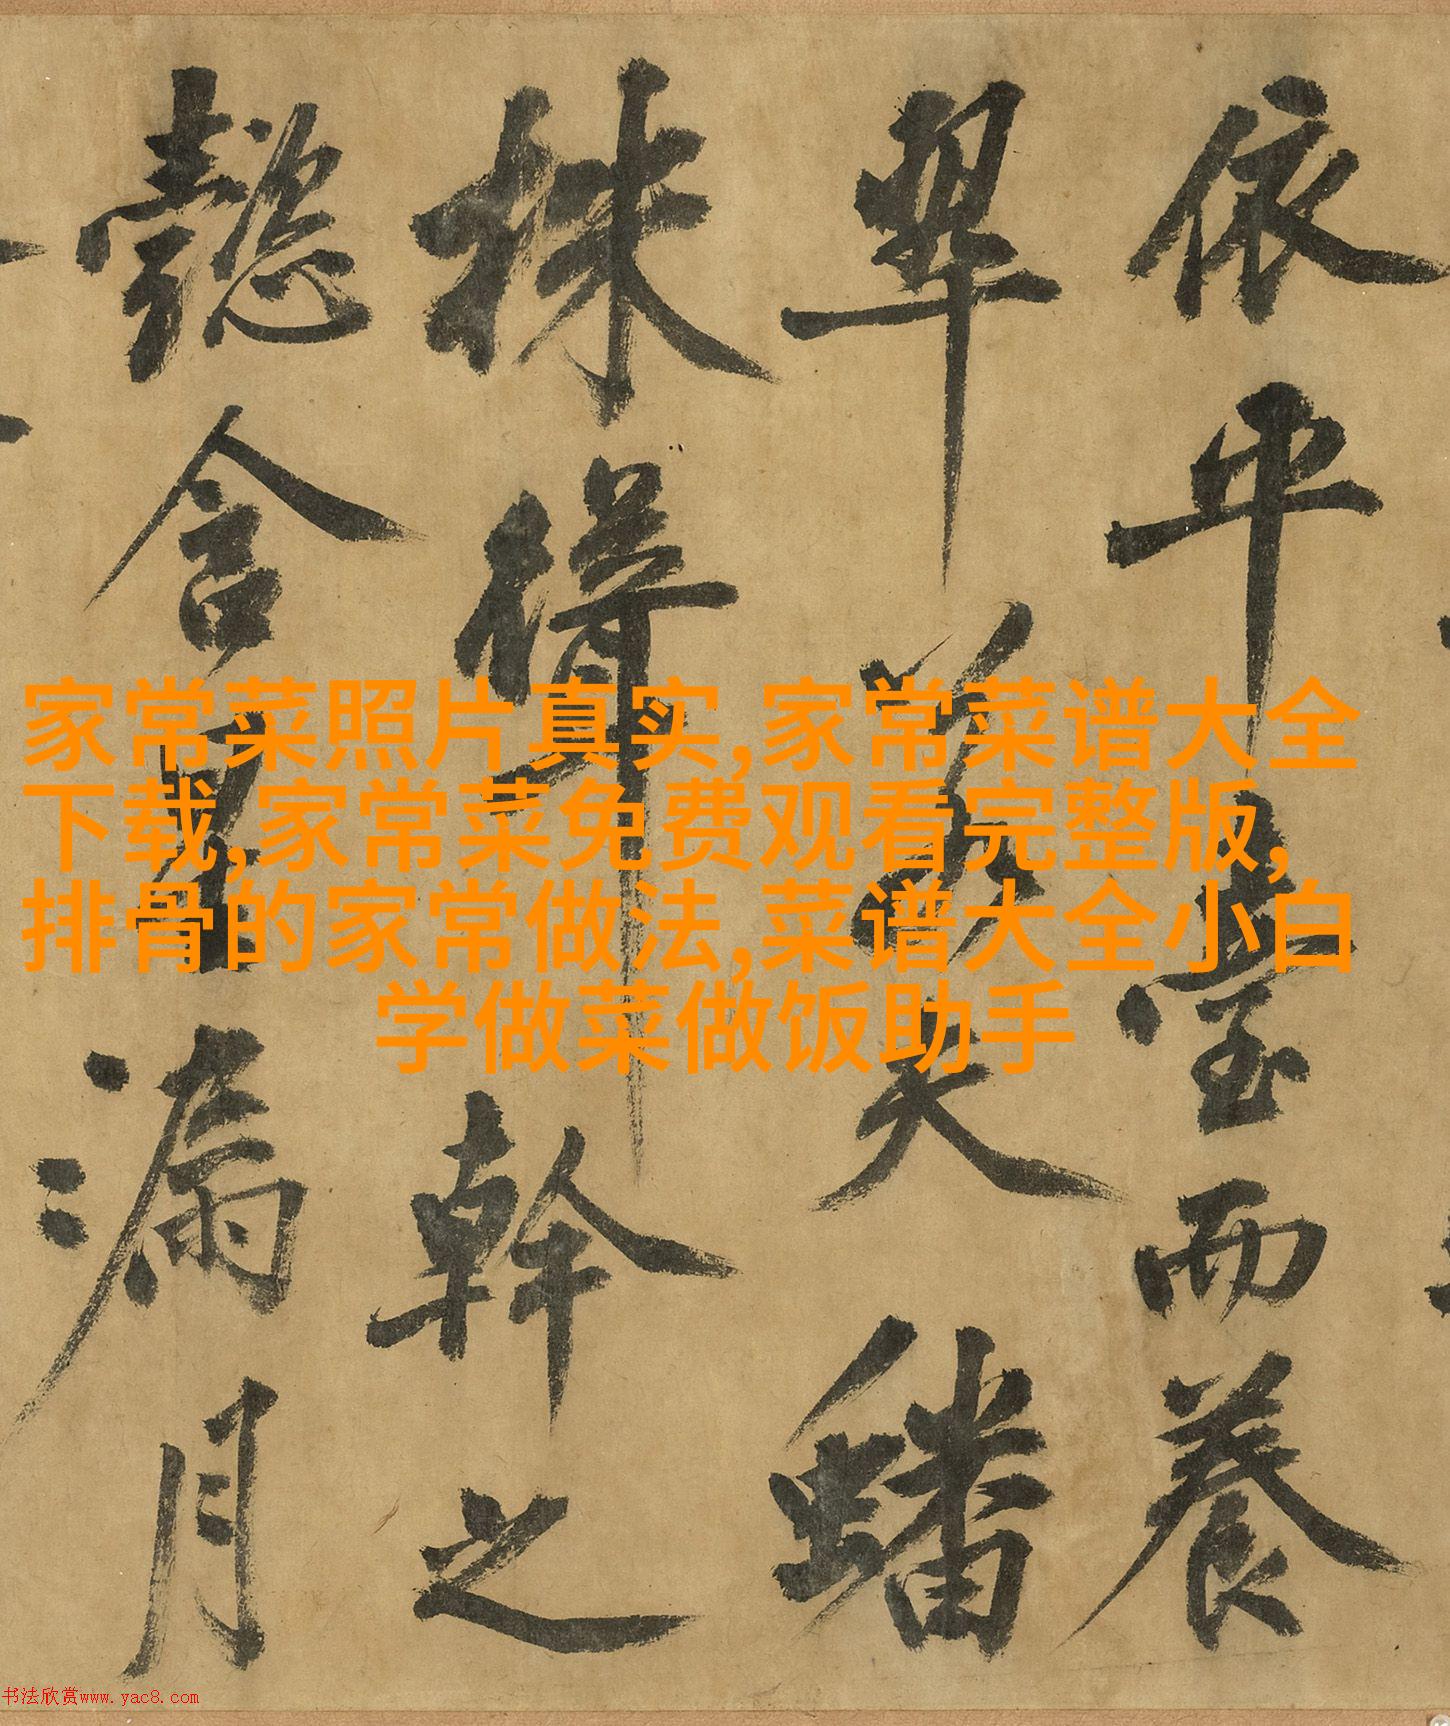 依平臺而養
翠若夫蟠
株幹之
懿含星漏月
家常菜照片真实,家常菜谱大全
下载,家常菜免费观看完整版,
排骨的家常做法,菜谱大全小白
学做菜做饭助手
书法欣赏www.yac8.com